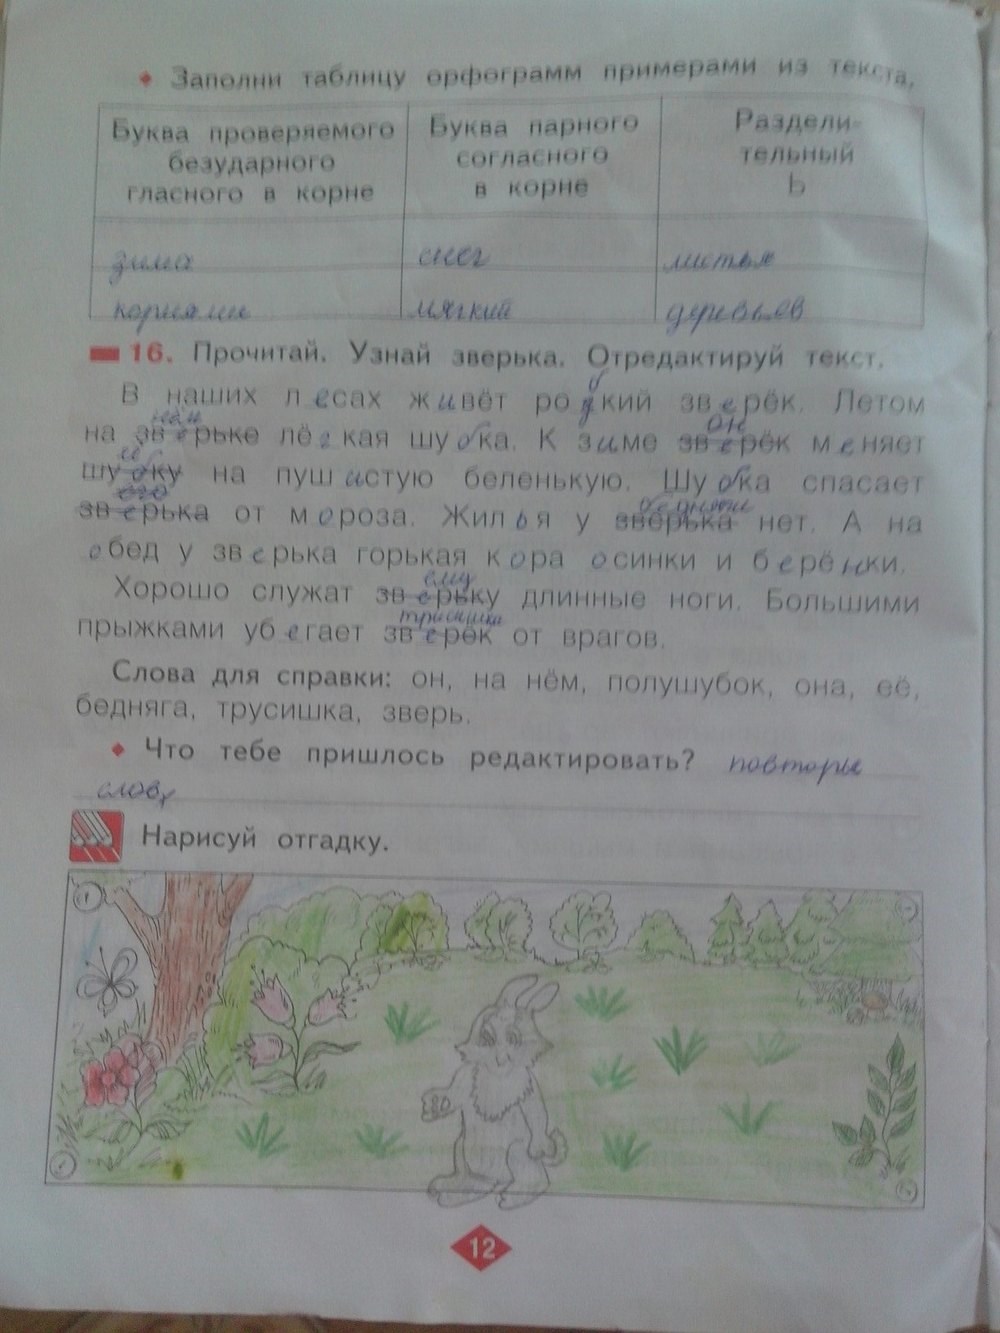 Заполни таблицу орфограмм примерами из текста,
Буква проверяемого безударного гласного в корне
Буква парного согласного в корне
Раздели-
тельный
ь
зима
снег
листья
корнями
мягкий
деревьев
16. Прочитай. Узнай зверька. Отредактируй текст.
б
В наших лесах живёт родкий зверёк. Летом
нам он
на зверьке лёгкая шубка. К зиме зверёк меняет
её
шубку на пушистую беленькую. Шубка спасает
его бедняги
зверька от мороза. Жилья у зверька нет. А на
обед у зверька горькая кора осинки и берёнки.
ему
Хорошо служат зверьку длинные ноги. Большими
трусишка
прыжками убегает зверёк от врагов.
Слова для справки: он, на нём, полушубок, она, её,
бедняга, трусишка, зверь.
Что тебе пришлось редактировать? повторы
слов
Нарисуй отгадку.
12